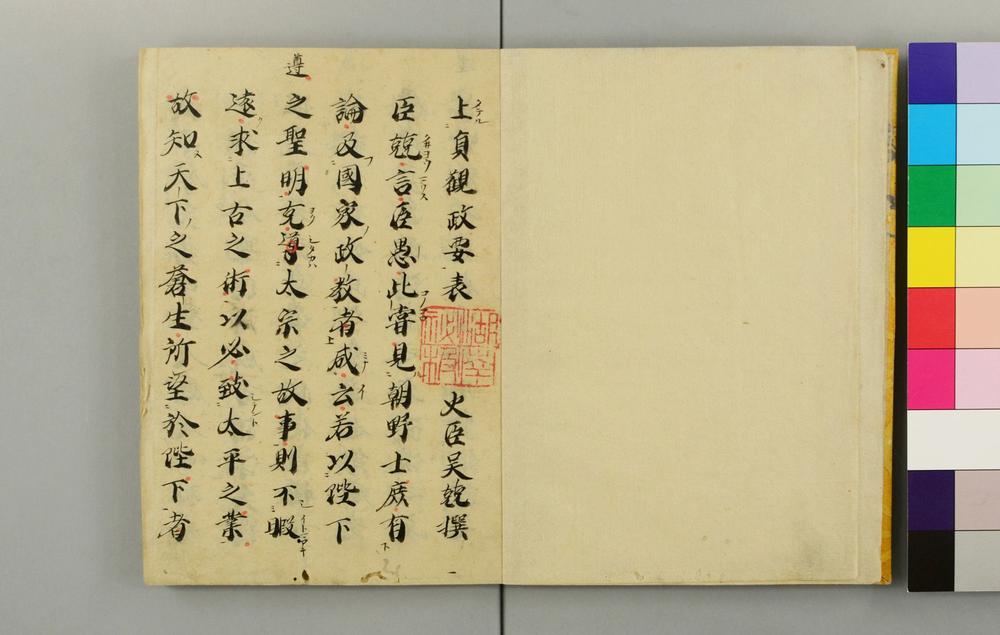 上貞観政要表 史臣吴兢撰
臣兢言臣愚比甞見朝野士庻有
論及國家政教者咸云若以陛下
之聖明克遵太宗之故事則不暇
遠求上古之術以必致太平之業
故知天下之蒼生所望於陛下者
遵